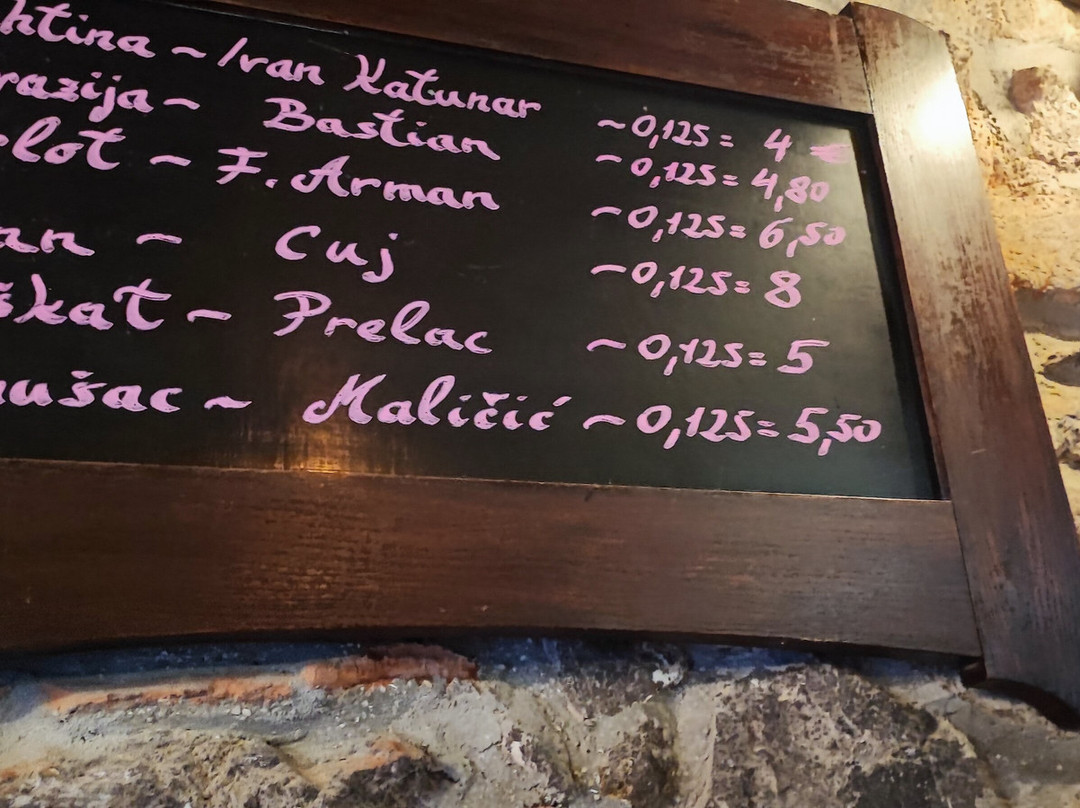 htina ~ Ivan Katunar ~0,125= 4 €
razija ~ Bastian ~0,125= 4,80
lot ~ F. Arman ~0,125= 6,50
an ~ Cuj ~0,125= 8
škat ~ Prelac ~0,125= 5
ušac ~ Maličić ~0,125= 5,50